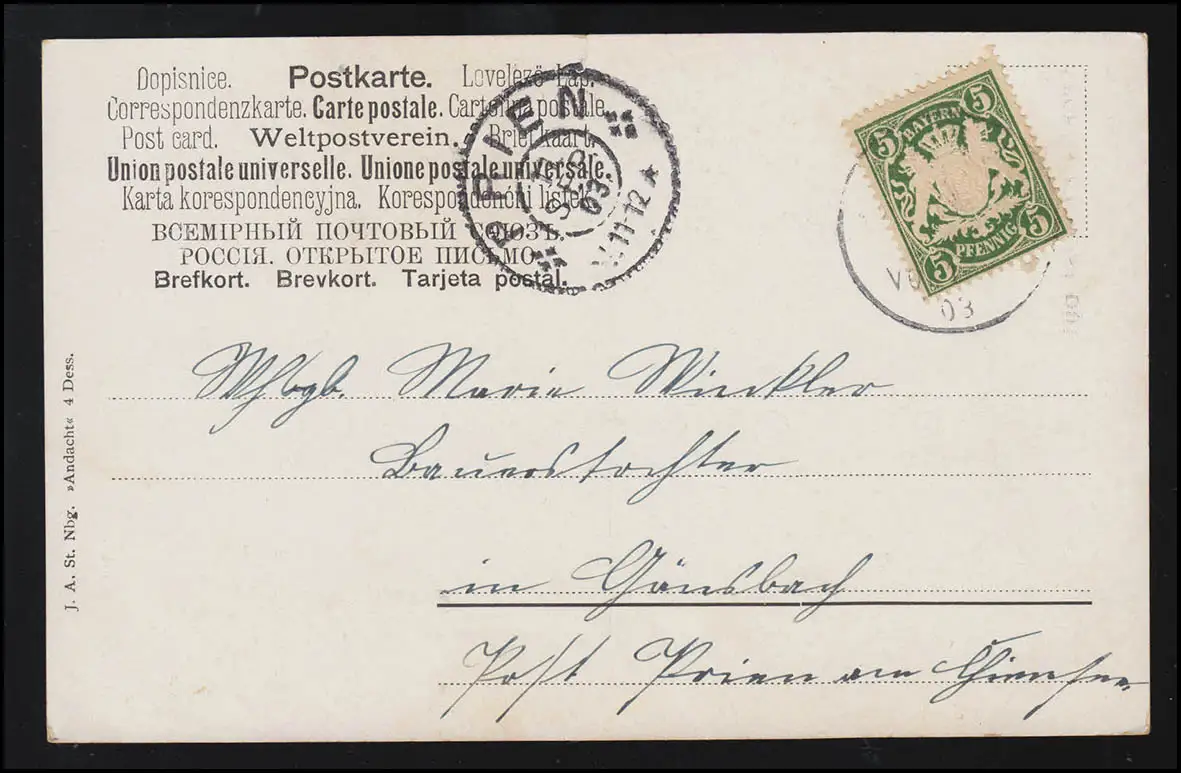 Dopisnice. Postkarte. Levelező-Lap.
Correspondenzkarte. Carte postale. Cartolina postale.
Post card. Weltpostverein. Briefkaart.
Union postale universelle. Unione postale universale.
Karta korespondencyjna. Korespondenčni listek.
ВСЕМІРНЫЙ ПОЧТОВЫЙ СОЮЗЪ.
РОССІЯ. ОТКРЫТОЕ ПИСЬМО.
Brefkort. Brevkort. Tarjeta postal.
PRIEN
SEP
03.
11-12
5
BAYERN
5
5
PFENNIG
5
03
Whlbgb. Marie Winkler
Bauerstochter
in Gänsbach
Post Prien am Chiemsee
J. A. St. Nbg. »Andacht« 4 Dess.